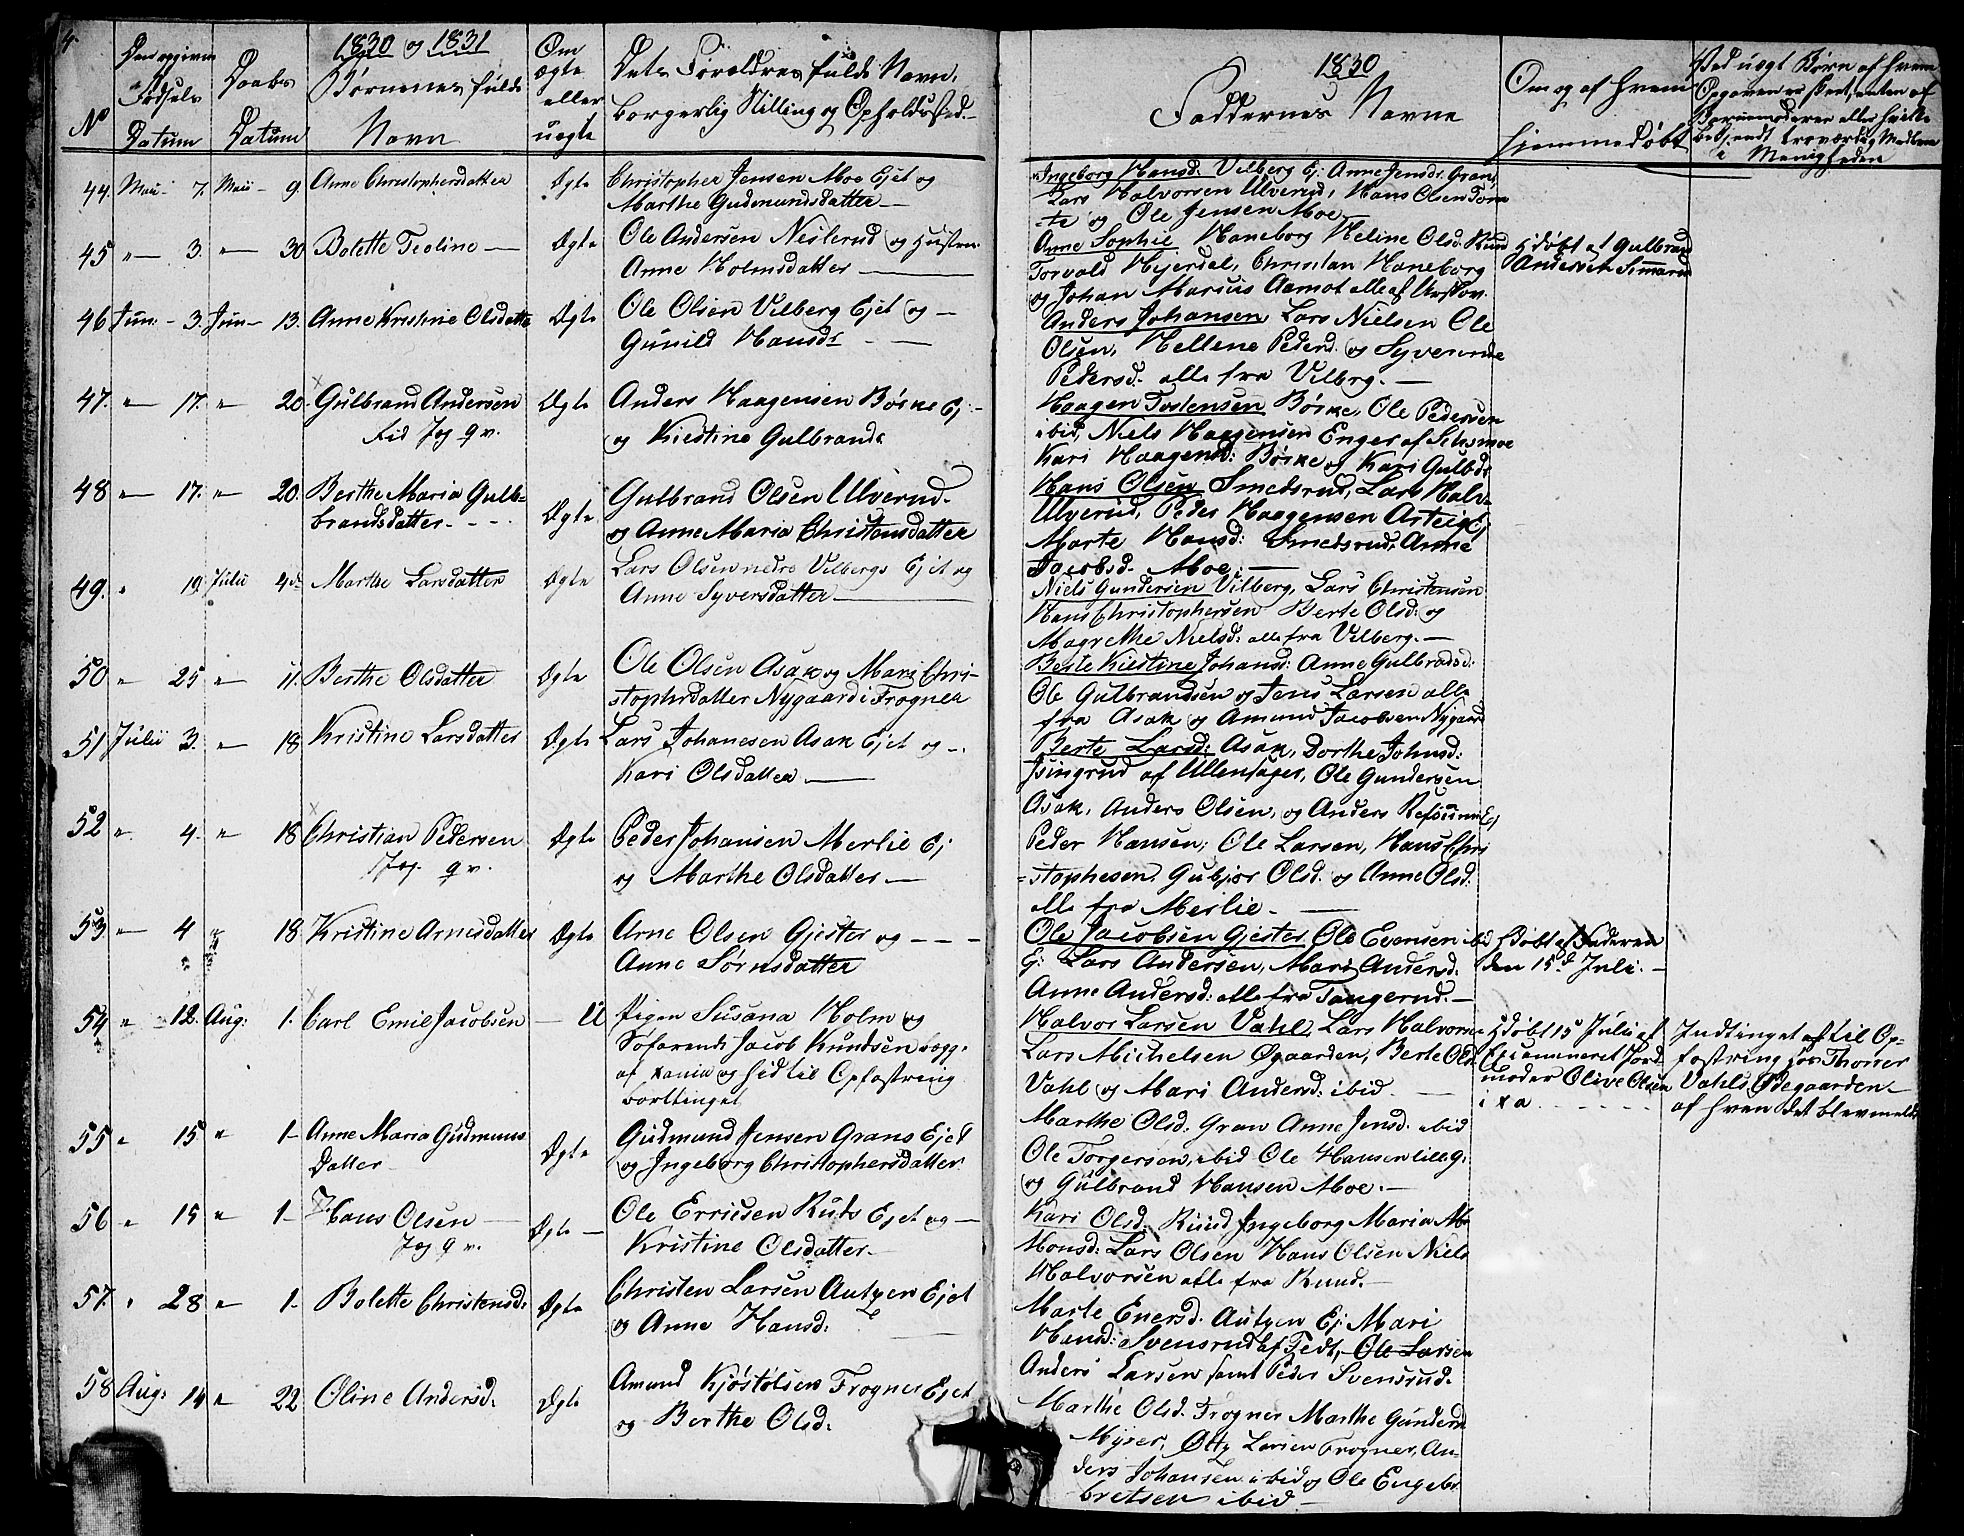 4.
1830 og 1831
No
Den opgivne Fødsels Datum
Daabs Datum
Børnenes fulde Navn
Om ægte eller uægte
Dets Forældres fulde Navn,
borgerlig Stilling og Opholdssted
1830
Faddernes Navne
Om og af hvem hjemmedøbt
Ved uægt Børn af hvem
Opgaven er skeet, enten af
Barnemoderen eller hvilke
bekjendt troværdig Medlem
i Menigheden
44. Maii 7. Maii 9. Anne Christophersdatter Ægte Christopher Jensen Moe Ejet og
Marthe Gudmundsdatter
Ingeborg Hansd. Vilberg Ej: Anne Jensdr. Gran,
Lars Halvorsen Ulverud, Hans Olsen
og Ole Jensen Moe
45 " 3. " 30 Bolette Teoline Ægte Ole Andersen Neslerud og Hustru
Anne Holmsdatter
Anne Sophie Haneborg Heline Olsd. Rund
Torvald Hejerdal, Christian Haneborg
og Johan Marcus Aamot alle af Urskov.
Hdøbt af Gulbrand
Andersen
46 Jun. 3. Jun 13. Anne Kristine Olsdatter Ægte Ole Olsen Vilberg Ejet og
Gunild Hansdr
Anders Johansen, Lars Nielsen Ole
Olsen, Hellene Pedersd. og Syverine
Pedersd. alle fra Vilbrg.
47. " 17. " 20. Gulbrand Andersen Ægte Anders Haagensen Børke Ej
og Kiestine Gulbrands
Haagen Tostensen Børke, Ole Pedersen
ibid, Niels Haagensen Enger af
Kari Haagensd: Børke og Kari Gulbds
48 " 17. " 20. Berthe Maria Gulb=
brandsdatter. Ægte Gulbrand Olsen Ulverud
og Anne Maria Christensdatter
Hans Olsen Smedsrud, Lars Halv.
Ulverud, Peder Haagensen Asteig
Marte Hansd: Smedsrud, Anne
Jacobsd. Moe.
49. " 19 Julii 4de Marthe Larsdatter Ægte Lars Olsen nedre Vilbergs Ejet og
Anne Syversdatter
Niels Gundersen Vilberg, Lars Christensen
Hans Christophersen Berte Olsd: og
Magrethe Nielsd: alle fra Vilberg.
50 " 25 " 11. Berthe Olsdatter Ægte Ole Olsen Asak og Mari Chri-
stophrdatter Nygaard i Frogner
Berte Kiestine Johansd: Anne Gulbradsd:
Ole Gulbrandsen og Jens Larsen alle
fra Asak og Amund Jacobsen Nygaard
51 Julii 3. " 18 Kristine Larsdatter Ægte Lars Johanesen Asak Ejet og
Kari Olsdatter
Berte Larsd: Asak, Dorthe Johnsd:
af Ullensager, Ole Gundersen
Asak, Anders Olsen, og Anders Refsum Ej
52 " 4. " 18 Christian Pedersen Ægte Peder Johansen Merlie Ej
og Marthe Olsdatter
Peder Hansen, Ole Larsen, Hans Chri
stophesen Gubjor Olsd. og Anne Olsd.
alle fra Merlie.
53 " 4 " 18 Kristine Arnesdatter Ægte Arne Olsen Gjester og
Anne Sørnsdatter
Ole Jacobsen Gjester, Ole Evensen ibid
Ej: Lars Andersen, Mari Andersd.
Anne Andersd: alle fra Tangerud.
Hdøbt af Faderen
den 15d Juli.
54 " 12. Aug: 1. Carl Emil Jacobsen U Pigen Susana Holm og
Søfarende Jacob Knudsen begge
af Xania og hid til Opfostring
borttinget
Halvor Larsen Vahl, Lars Halvorsn
Lars Michelsen Øgaarden, Berte Olsd.
Vahl og Mari Andersd: ibid.
Hdøbt 15 Julii af
Examineret Jord
moder Olive Olsen
i Xa
Indtinget af til Op=
fostring hos Thorer
Vahls Ødegaarden
af hven det blev meldt
55 " 15 " 1 Anne Maria Gudmuns
Datter Ægte Gudmund Jensen Grans Ejet
og Ingeborg Christophersdatter
Marthe Olsd. Gran Anne Jensd. ibid
Ole Torgersen, ibid Ole Hansen lilleG.
og Gulbrand Hansen Moe.
56 " 15 " 1 Hans Olsen Ægte Ole Ericsen Ruds Ejet og
Kristine Olsdatter
Kari Olsd. Ruud Ingeborg Maria
Monsd: Lars Olsen Hans Olsen Niels
Halvorsen alle fra Ruud.
57. " 28 " 1 Bolette Christensd: Ægte Christen Larsen Autzen Ejet
og Anne Hansd:
Marte Enersd. Autzen Ej: Mari
Hansd: Svensrud af Fedt, Ole Larsen
Anders Larsen samt Peder Svensrud.
58 Aug: 14 " 22 Oline Andersd. Ægte Amund Kjøstolsen Frogner Ejet
og Berthe Olsd:
Marthe Olsd. Frogner Marthe Gundersd
Myrer, Otty Larsen Frogner, An-
ders Johansen ibid og Ole Engebr
bretsen ibid